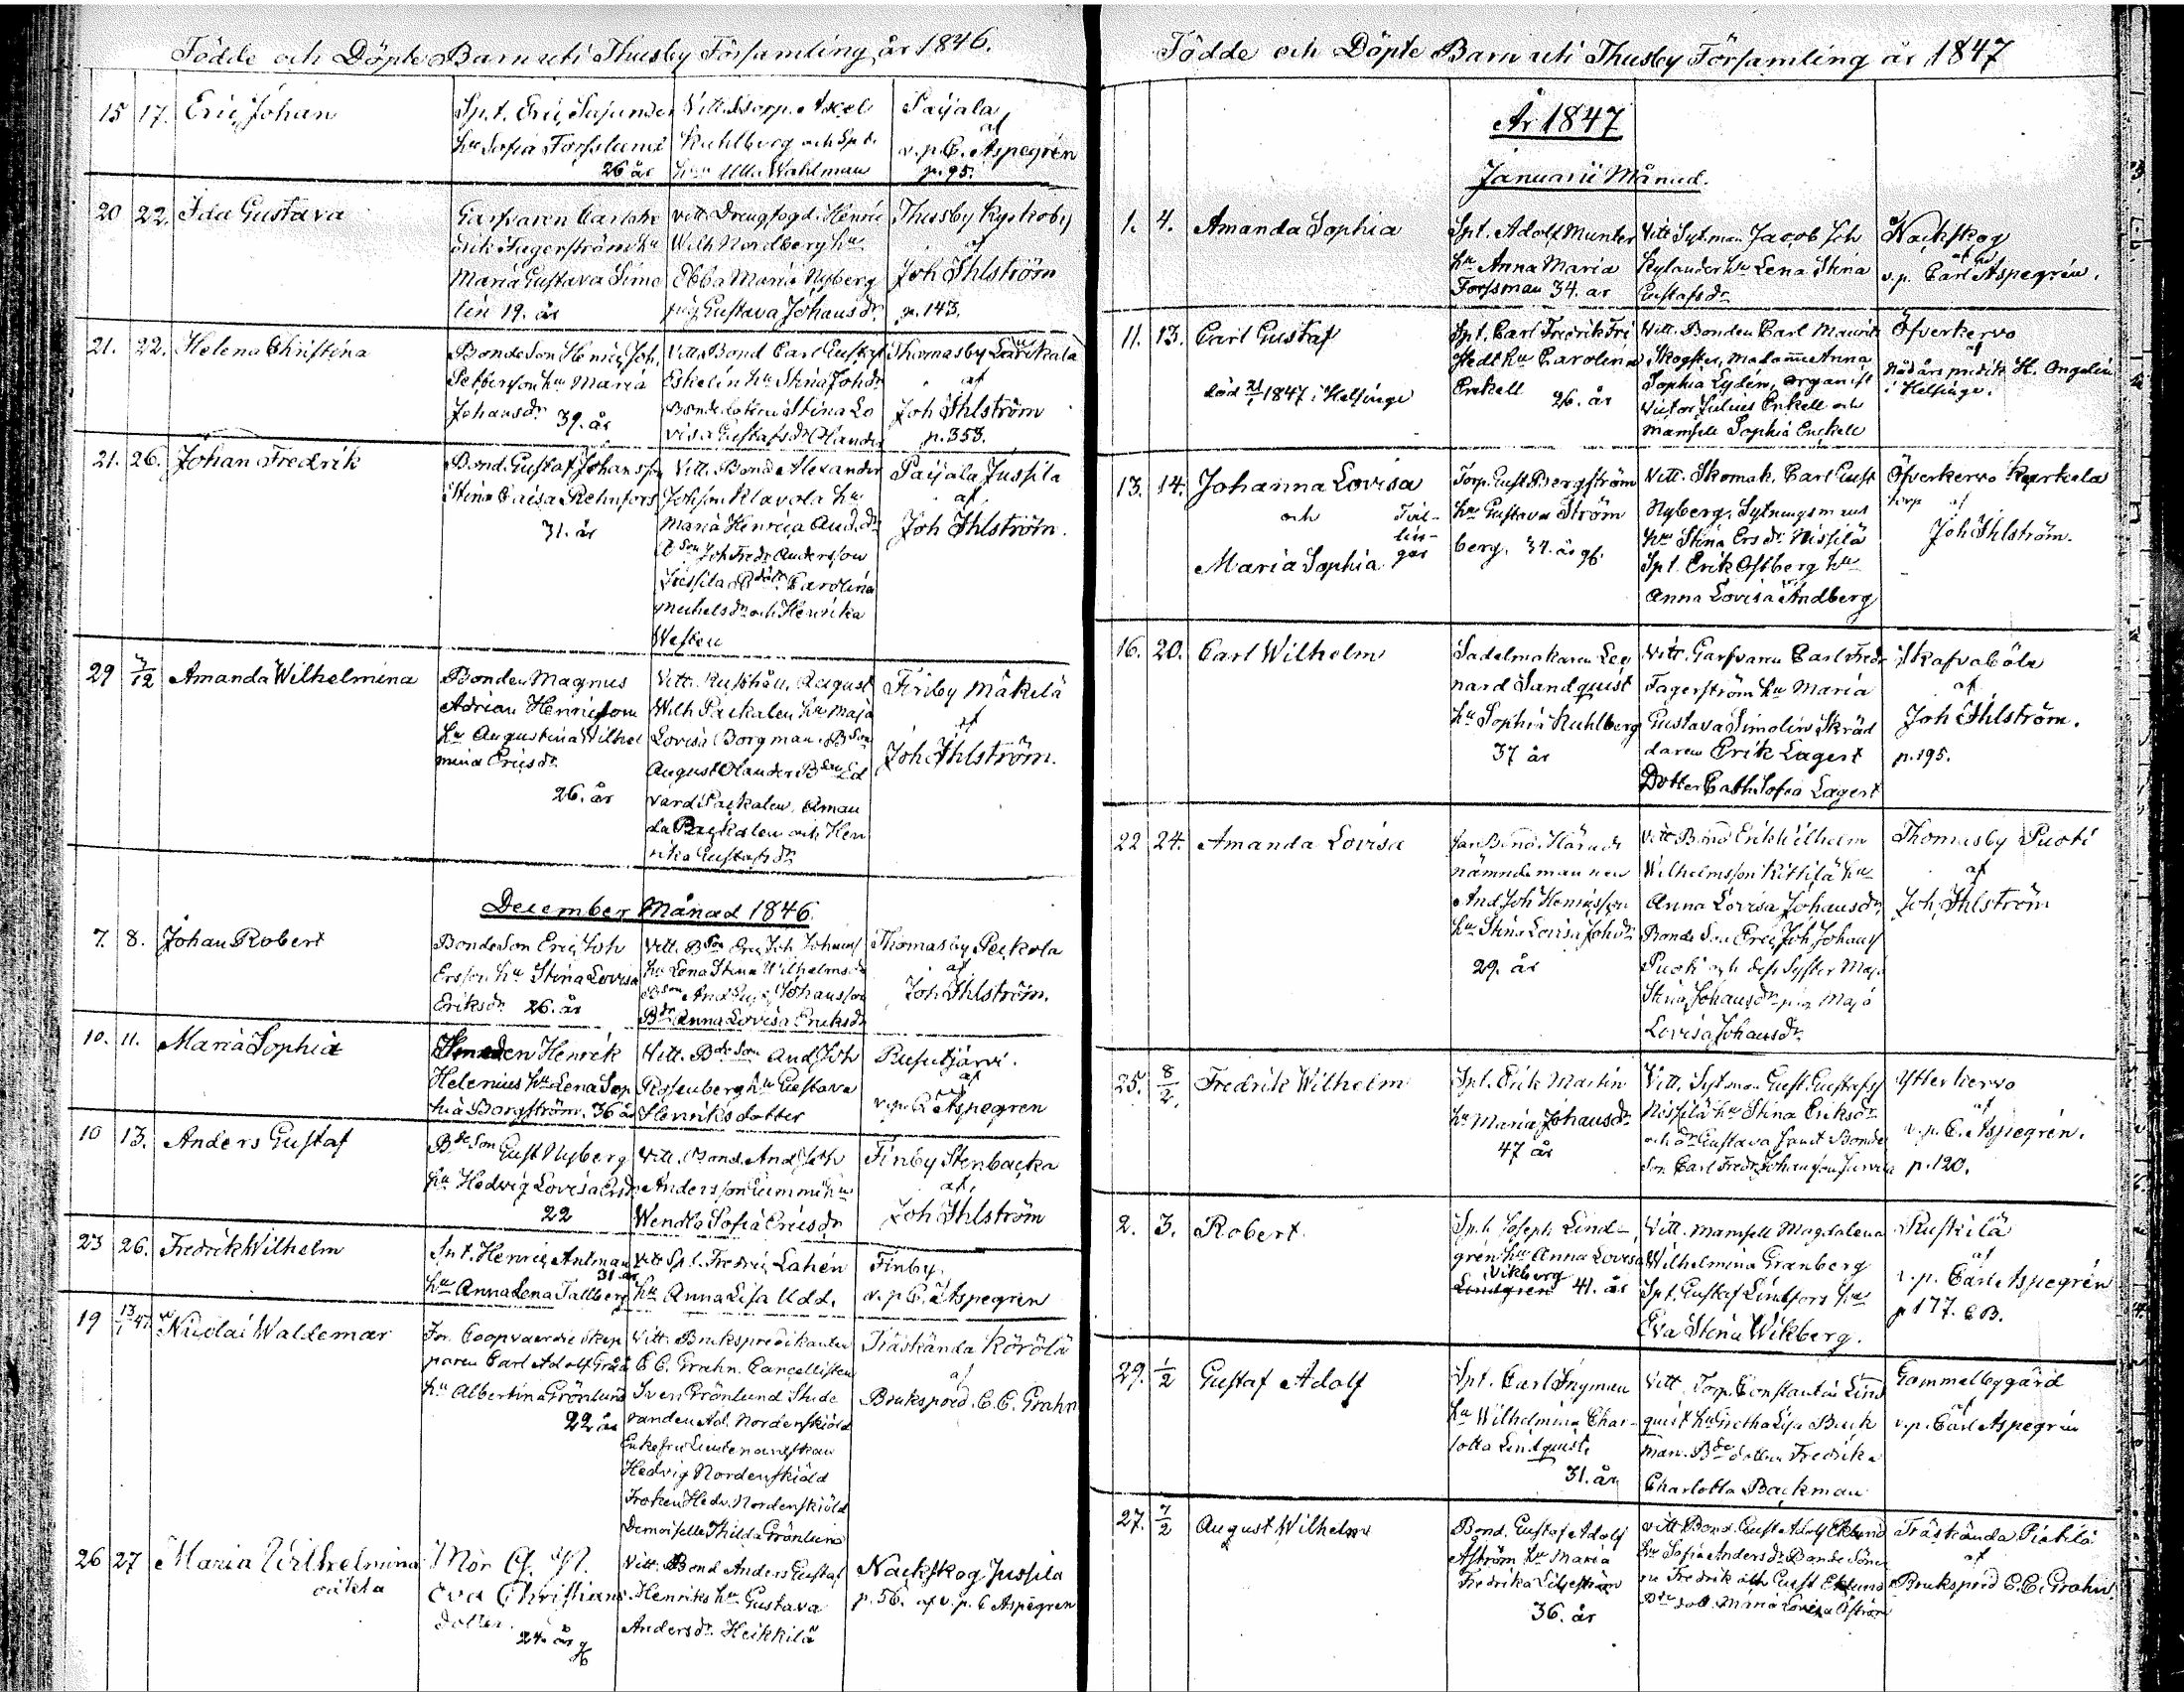 Födde och Döpte Barn uti Thusby Församling år 1846.
15 17. Eric Johan
Spt. Eric Sajunder
hu Sofia Forsslund
26 år
Vitt. Axel
Kuhlberg och Spt.
Ulla Wahlman
Paijala
af
v.p. C. Aspegrén
p. 95.
20 22. Ida Gustava
Garfvaren Carl
Erik Fagerström hu
Maria Gustava Simo
lin 19. år
Vitt. Drengfogd. Henric
Wilh Nordberg hu
Ebba Maria Nyberg
pig. Gustava Johansdr.
Thusby Kyrkoby
af
Joh Ihlström
p. 143.
21. 22. Helena Christina
Bonde Son Henric Joh.
hu Maria
Johansdr 39. år
Vitt. Bond Carl Gustaf
Eskelin hu Stina Johdr
Stina Lo
visa Gustafsdr Olander
Thomasby
af
Joh Ihlström
p. 353.
21. 26. Johan Fredrik
Bond. Gustaf Johansson
Stina Caisa Rehnfors
31. år
Vitt. Bond Alexander
Johsson Klavola hu
Maria Henrica And.dr
Bson Joh Fredr Andersson
Jussila Carolina
Michelsdr och Henrika
Westen
Paijala Jussila
af
Joh Ihlström.
29 7/12 Amanda Wilhelmina
Bonden Magnus
Adrian Henricsson
hu Augustina Wilhel
mina Ericsdr.
26. år
Vitt. Rusthåll. August
Wilh Paikalen hu Maja
Lovisa Borgman. Bson
August Olander Bson Ed
vard Paikalen, Aman
da Paikalen och Hen
rika Gustafsdr
Finby Mäkelä
af
Joh Ihlström.
December Månad 1846.
7. 8. Johan Robert
Bonde Son Eric Joh
Ersson hu Stina Lovisa
Eriksdr 26. år
Vitt. Bson Eric Joh Johanss
hu Lena Stina Wilhelmsdr
Bson And Johansson
Bdr Anna Lovisa Eriksdr
Thomasby Peckola
af
Joh Ihlström.
10. 11. Maria Sophia
Smeden Henrik
Helenius hu Lena Sop
hia Borgström. 36 år
Vitt. Bde Son And Joh
Rosenberg hu Gustava
Henriksdotter
Rusutjärvi.
af
v.p. C. Aspegren
10 13. Anders Gustaf
Bde Son Gust Nyberg
hu Hedvig Lovisa Ersdr
22
Vitt. Bond. And Joh
Andersson hu
Wendla Sofia Ericsdr
Finby Stenbacka
af
Joh Ihlström
23 26. Fredrik Wilhelm
Spt. Henric Antman
31. år
hu Anna Lena Tallberg
Vitt Spt. Fredric Lahén
hu Anna Lisa Udd.
Finby.
v.p. C. Aspegren
19 13/1 47. Nicolai Waldemar
For. Coopvaerdie Skep
paren Carl Adolf
hu Albertina Grönlund
22 år
Vitt. Brukspredikanten
C C. Grahn. Cancellisten
Sven Grönlund Stude
randen Ad. Nordenskiöld
Enkefru Lieutenantskan
Hedvig Nordenskiöld
Fröken Hedv. Nordenskiöld
Demoiselle Thilda Grönlund
Träskända Körölä
af
Brukspred. C. C. Grahn
26 27 Maria Wilhelmina
oäkta
Mor
Eva Christians
dotter.
24. år
Vitt. Bond Anders Gustaf
Henriks hu Gustava
Andersdr. Heikkilä
Nackskog Jussila
p. 56. af v.p. C Aspegren
Födde och Döpte Barn uti Thusby Församling år 1847
År 1847
Januarii Månad.
1. 4. Amanda Sophia
Spt. Adolf Munter
hu Anna Maria
Forssman 34. år
Vitt Syt.man Jacob Joh
Kylander hu Lena Stina
Gustafsdr
Nackskog
af
v.p. Carl Aspegrén.
11. 13. Carl Gustaf
död 21/1 1847 i Helsinge
Spt. Carl Fredrik Fri
stedt hu Carolina
Enkell 26. år
Vitt. Bonden Carl Maurits
Skogster, Madamme Anna
Sophia Lydén, organist
Victor Julius Enkell och
Mamsell Sophia Enkell
Öfverkervo
af
Nådårs predik H. Ongelin
i Helsinge.
13. 14. Johanna Lovisa
och
Maria Sophia
Tvil-
lin-
gar
Torp. Gust Bergström
hu Gustava Ström
berg. 34. år
Vitt. Skomak. Carl Gust
Nyberg, Sytningsman
hu Stina Ersdr. Nissilä
Spt. Erik Ostberg hu
Anna Lovisa Andberg
Öfverkervo Kerkela
torp af
Joh Ihlström.
16. 20. Carl Wilhelm
Sadelmakaren Leo
nard Sandquist
hu Sophia Kuhlberg
37 år
Vitt. Garfvaren Carl Fredr
Fagerström hu Maria
Gustava Simolin Skräd
daren Erik Lagert
Dotter Cath Sofia Lagert
Skafvaböle
af
Joh Ihlström.
p. 195.
22 24. Amanda Lovisa
Bond. Härads
nämndemannen
And Joh Henricsson
hu Stina Lovisa Johdr
29. år
Vitt Bond Erik Wilhelm
Wilhelmsson Kittilä hu
Anna Lovisa Johansdr,
Bonde Son Eric Joh. Johans
Puoti och dess Syster Maja
Stina Johansdr. pig. Maja
Lovisa Johansdr.
Thomasby Puoti
af
Joh. Ihlström
25. 8/2. Fredrik Wilhelm
Spt. Erik Martin
hu Maria Johansdr
47 år
Vitt. Sytman Gust. Gustafss
Nissilä hu Stina Eriksdr
och dr Gustava samt Bonde
Son Carl Fredr. Johansson
Ytterkervo
af
v.p. C. Aspegrén.
p. 120.
2. 3. Robert.
Spt. Joseph Lind-
grén hu Anna Lovisa
Vikberg
Lindgren 41. år
Vitt. Mamsell Magdalena
Wilhelmina Granberg
Spt. Gustaf Lindfors hu
Eva Stina Wikberg.
Ruskilä
af
v.p. Carl Aspegrén
p 177. C B.
29. 1/2 Gustaf Adolf
Spt. Carl Ingman
hu Wilhelmina Char-
lotta Lindquist.
31. år
Vitt. Torp. Constantin Lind
quist hu Gretha Lisa Back
man. Bde dotter Fredrika
Charlotta Backman
Gammelbygård
af
v.p. Carl Aspegrén
27. 7/2 August Wilhelm
Bond. Gustaf Adolf
Åström hu Maria
Fredrika Liljeström
36. år
Vitt Bond. Gust Adolf Eklund
hu Sofia Andersdr. Bonde Söner
na Fredrik och Gust Eklund
dott. Maria Lovisa Åström
Träskända Pietilä
af
Brukspred C. C. Grahn.